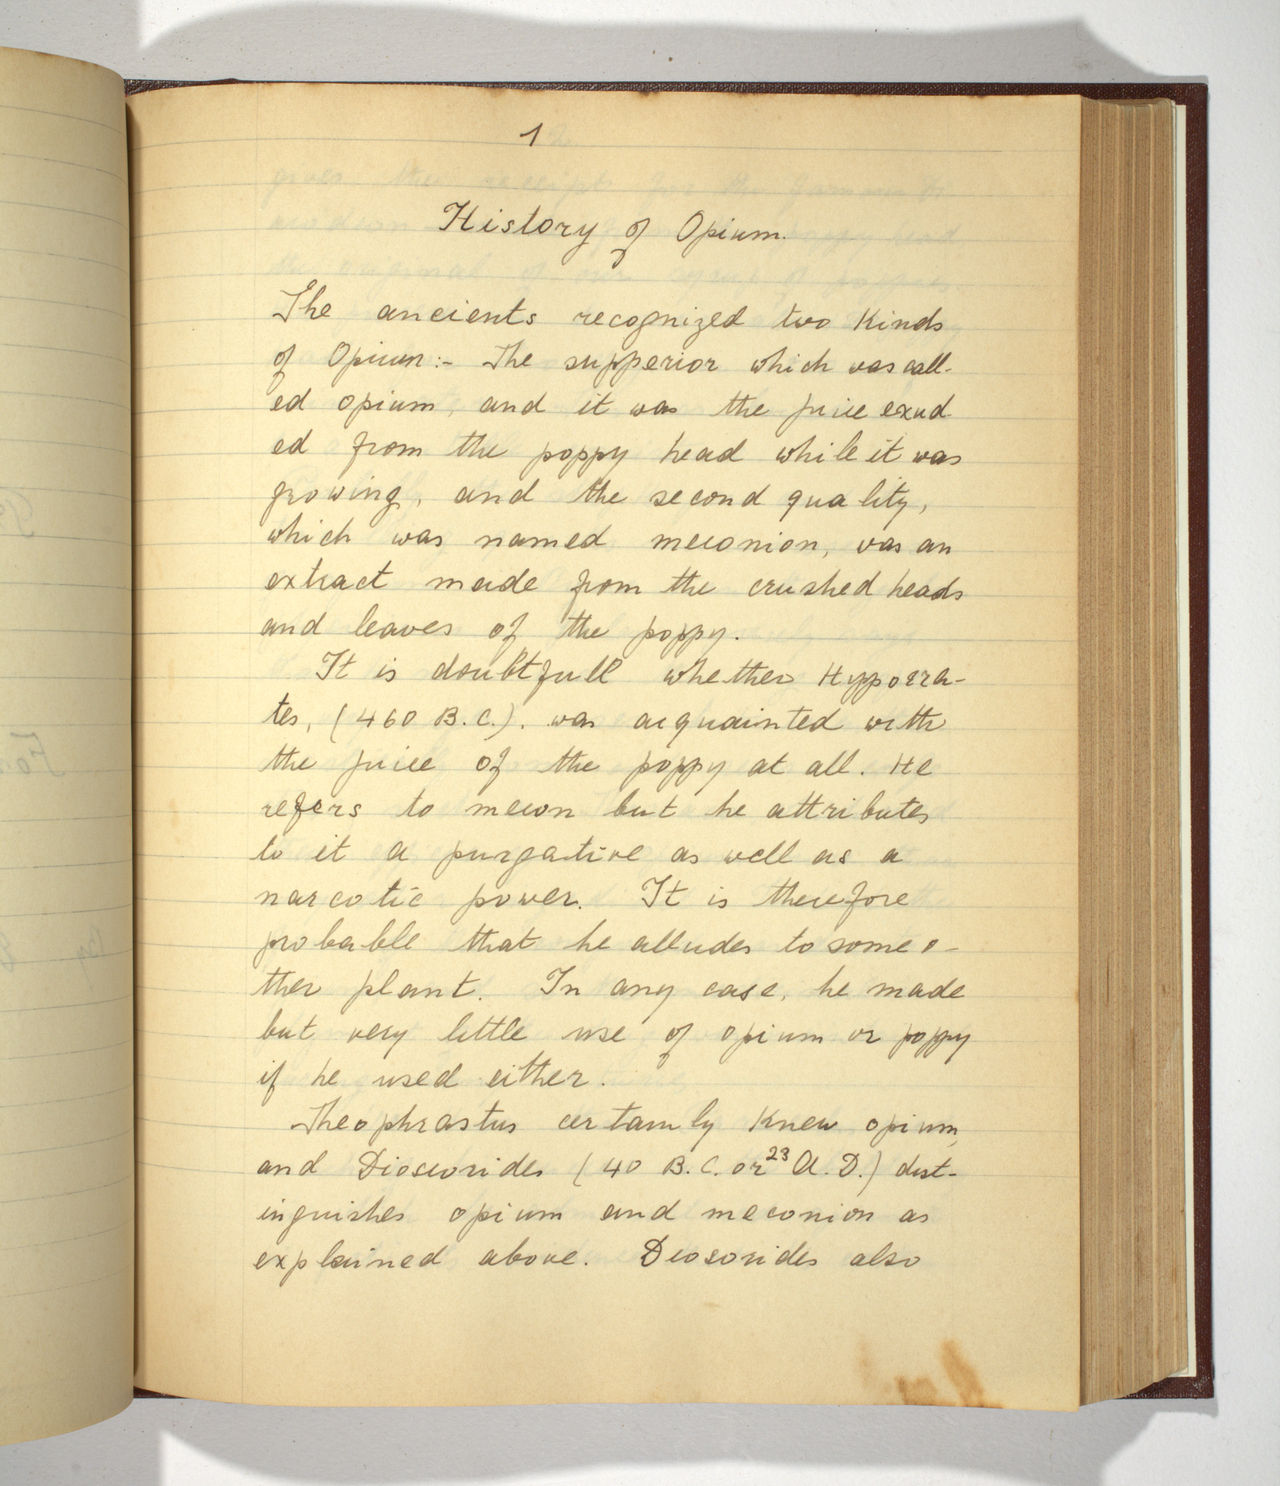 1
History of Opium.
The ancients recognized two kinds
of Opium:- The supperior which was call-
ed opium, and it was the juice exud
ed from the poppy head while it was
growing, and the second quality,
which was named meconion, was an
extract made from the crushed heads
and leaves of the poppy.
It is doubtfull whether Hyppocra-
tes, (460 B.C.). was acquainted with
the juice of the poppy at all. He
refers to mecon but he attributes
to it a purgative as well as a
narcotic power. It is therefore
probable that he alludes to some o-
ther plant. In any case, he made
but very little use of opium or poppy
if he used either.
Theophrastus certainly knew opium,
and Dioscorides (40 B.C. or 23 A.D.) dist-
inguishes opium and meconion as
explained above. Diosorides also